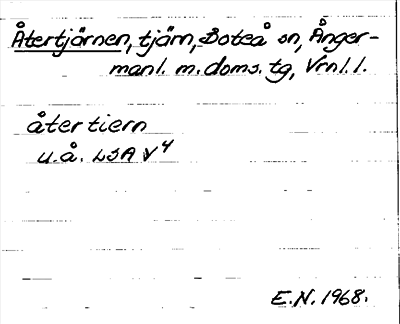 Återtjärnen, tjärn, Boteå sn, Ånger-
manl. m. doms. tg, Vrnl. l.
åter tiern
u.å. LSA V4
E.N. 1968.